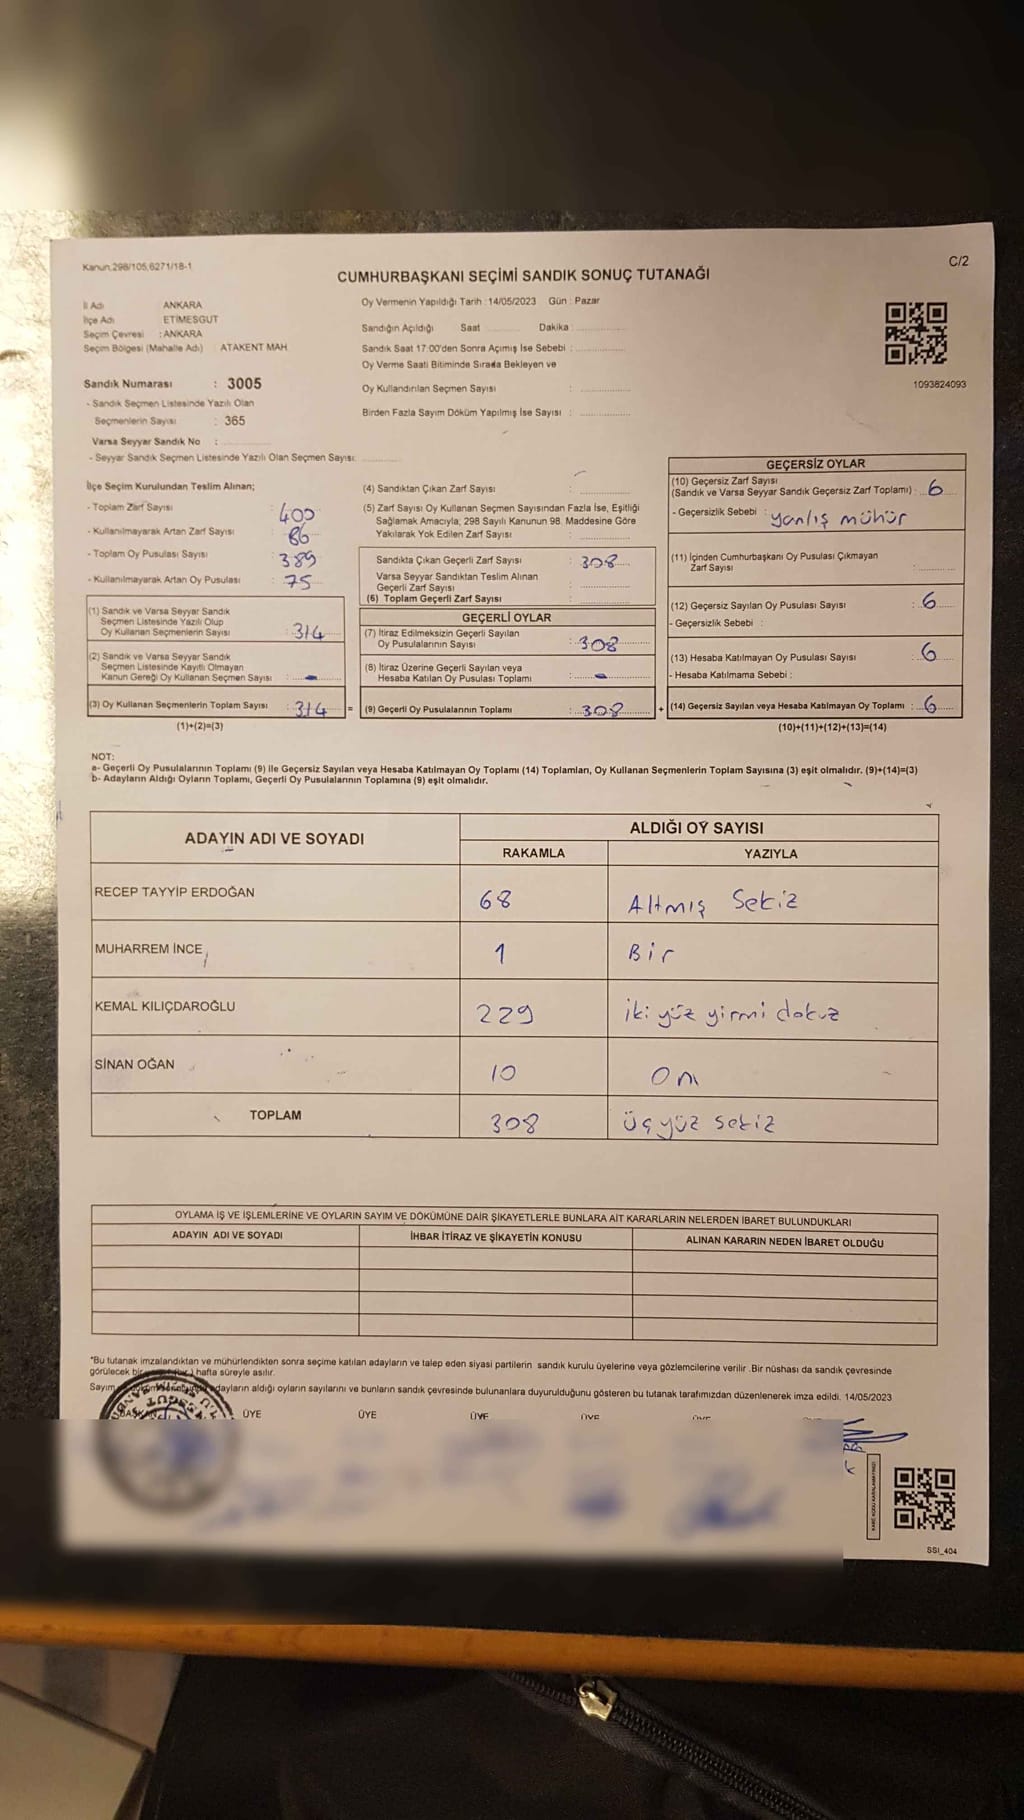 Kanun.298/105,6271/18-1
C/2
CUMHURBAŞKANI SEÇİMİ SANDIK SONUÇ TUTANAĞI
İl Adı ANKARA
İlçe Adı ETİMESGUT
Seçim Çevresi : ANKARA
Seçim Bölgesi (Mahalle Adı) : ATAKENT MAH
Sandık Numarası : 3005
- Sandık Seçmen Listesinde Yazılı Olan
Seçmenlerin Sayısı : 365
Varsa Seyyar Sandık No :
- Seyyar Sandık Seçmen Listesinde Yazılı Olan Seçmen Sayısı:
Oy Vermenin Yapıldığı Tarih : 14/05/2023 Gün : Pazar
Sandığın Açıldığı Saat Dakika :
Sandık Saat 17:00'den Sonra Açımış İse Sebebi :
Oy Verme Saati Bitiminde Sırada Bekleyen ve
Oy Kullandırılan Seçmen Sayısı :
Birden Fazla Sayım Döküm Yapılmış İse Sayısı :
1093824093
İlçe Seçim Kurulundan Teslim Alınan;
- Toplam Zarf Sayısı : 400
- Kullanılmayarak Artan Zarf Sayısı : 86
- Toplam Oy Pusulası Sayısı : 389
- Kullanılmayarak Artan Oy Pusulası : 75
(1) Sandık ve Varsa Seyyar Sandık
Seçmen Listesinde Yazılı Olup
Oy Kullanan Seçmenlerin Sayısı : 314
(2) Sandık ve Varsa Seyyar Sandık
Seçmen Listesinde Kayıtlı Olmayan
Kanun Gereği Oy Kullanan Seçmen Sayısı : -
(3) Oy Kullanan Seçmenlerin Toplam Sayısı : 314 =
(1)+(2)=(3)
(4) Sandıktan Çıkan Zarf Sayısı :
(5) Zarf Sayısı Oy Kullanan Seçmen Sayısından Fazla İse, Eşitliği
Sağlamak Amacıyla; 298 Sayılı Kanunun 98. Maddesine Göre
Yakılarak Yok Edilen Zarf Sayısı :
Sandıkta Çıkan Geçerli Zarf Sayısı : 308
Varsa Seyyar Sandıktan Teslim Alınan
Geçerli Zarf Sayısı :
(6) Toplam Geçerli Zarf Sayısı :
GEÇERLİ OYLAR
(7) İtiraz Edilmeksizin Geçerli Sayılan
Oy Pusulalarının Sayısı : 308
(8) İtiraz Üzerine Geçerli Sayılan veya
Hesaba Katılan Oy Pusulası Toplamı : -
(9) Geçerli Oy Pusulalarının Toplamı : 308 +
GEÇERSİZ OYLAR
(10) Geçersiz Zarf Sayısı
(Sandık ve Varsa Seyyar Sandık Geçersiz Zarf Toplamı) : 6
- Geçersizlik Sebebi : yanlış mühür
(11) İçinden Cumhurbaşkanı Oy Pusulası Çıkmayan
Zarf Sayısı :
(12) Geçersiz Sayılan Oy Pusulası Sayısı : 6
- Geçersizlik Sebebi :
(13) Hesaba Katılmayan Oy Pusulası Sayısı : 6
- Hesaba Katılmama Sebebi :
(14) Geçersiz Sayılan veya Hesaba Katılmayan Oy Toplamı : 6
(10)+(11)+(12)+(13)=(14)
NOT:
a- Geçerli Oy Pusulalarının Toplamı (9) ile Geçersiz Sayılan veya Hesaba Katılmayan Oy Toplamı (14) Toplamları, Oy Kullanan Seçmenlerin Toplam Sayısına (3) eşit olmalıdır. (9)+(14)=(3)
b- Adayların Aldığı Oyların Toplamı, Geçerli Oy Pusulalarının Toplamına (9) eşit olmalıdır.
ADAYIN ADI VE SOYADI
ALDIĞI OY SAYISI
RAKAMLA YAZIYLA
RECEP TAYYİP ERDOĞAN 68 Altmış Sekiz
MUHARREM İNCE 1 Bir
KEMAL KILIÇDAROĞLU 229 iki yüz yirmi dokuz
SİNAN OĞAN 10 On
TOPLAM 308 üç yüz sekiz
OYLAMA İŞ VE İŞLEMLERİNE VE OYLARIN SAYIM VE DÖKÜMÜNE DAİR ŞİKAYETLERLE BUNLARA AİT KARARLARIN NELERDEN İBARET BULUNDUKLARI
ADAYIN ADI VE SOYADI İHBAR İTİRAZ VE ŞİKAYETİN KONUSU ALINAN KARARIN NEDEN İBARET OLDUĞU
*Bu tutanak imzalandıktan ve mühürlendikten sonra seçime katılan adayların ve talep eden siyasi partilerin sandık kurulu üyelerine veya gözlemcilerine verilir .Bir nüshası da sandık çevresinde
görülecek bir hafta süreyle asılır.
Sayım adayların aldığı oyların sayılarını ve bunların sandık çevresinde bulunanlara duyurulduğunu gösteren bu tutanak tarafımızdan düzenlenerek imza edildi. 14/05/2023
BAŞKAN ÜYE ÜYE ÜYE ÜYE
SSI_404